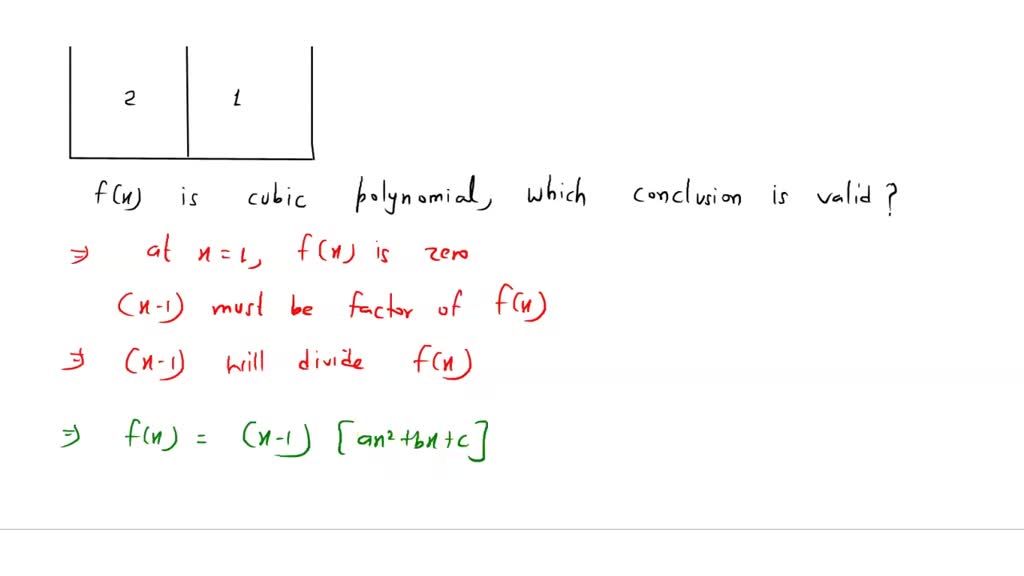 2 1
f(x) is cubic polynomial, which conclusion is valid?
⇒ at x=1, f(x) is zero
(x-1) must be factor of f(x)
⇒ (x-1) will divide f(x)
⇒ f(x) = (x-1) [ax²+bx+c]